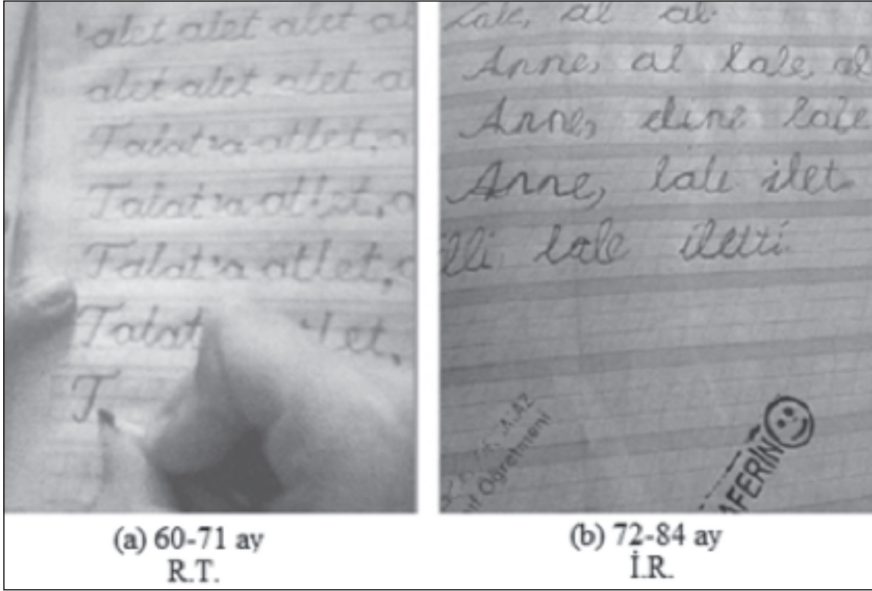 alet alet alet al
alet alet alet a
Talat'a atlet, a
Talat'a atlet, a
Talat'a atlet, a
Talat let,
T
Lale, al al
Anne, al lale, al
Anne, lale
Anne, lale ilet
lale iletti.
Öğretmeni
AFERİN
(a) 60-71 ay
R.T.
(b) 72-84 ay
İ.R.